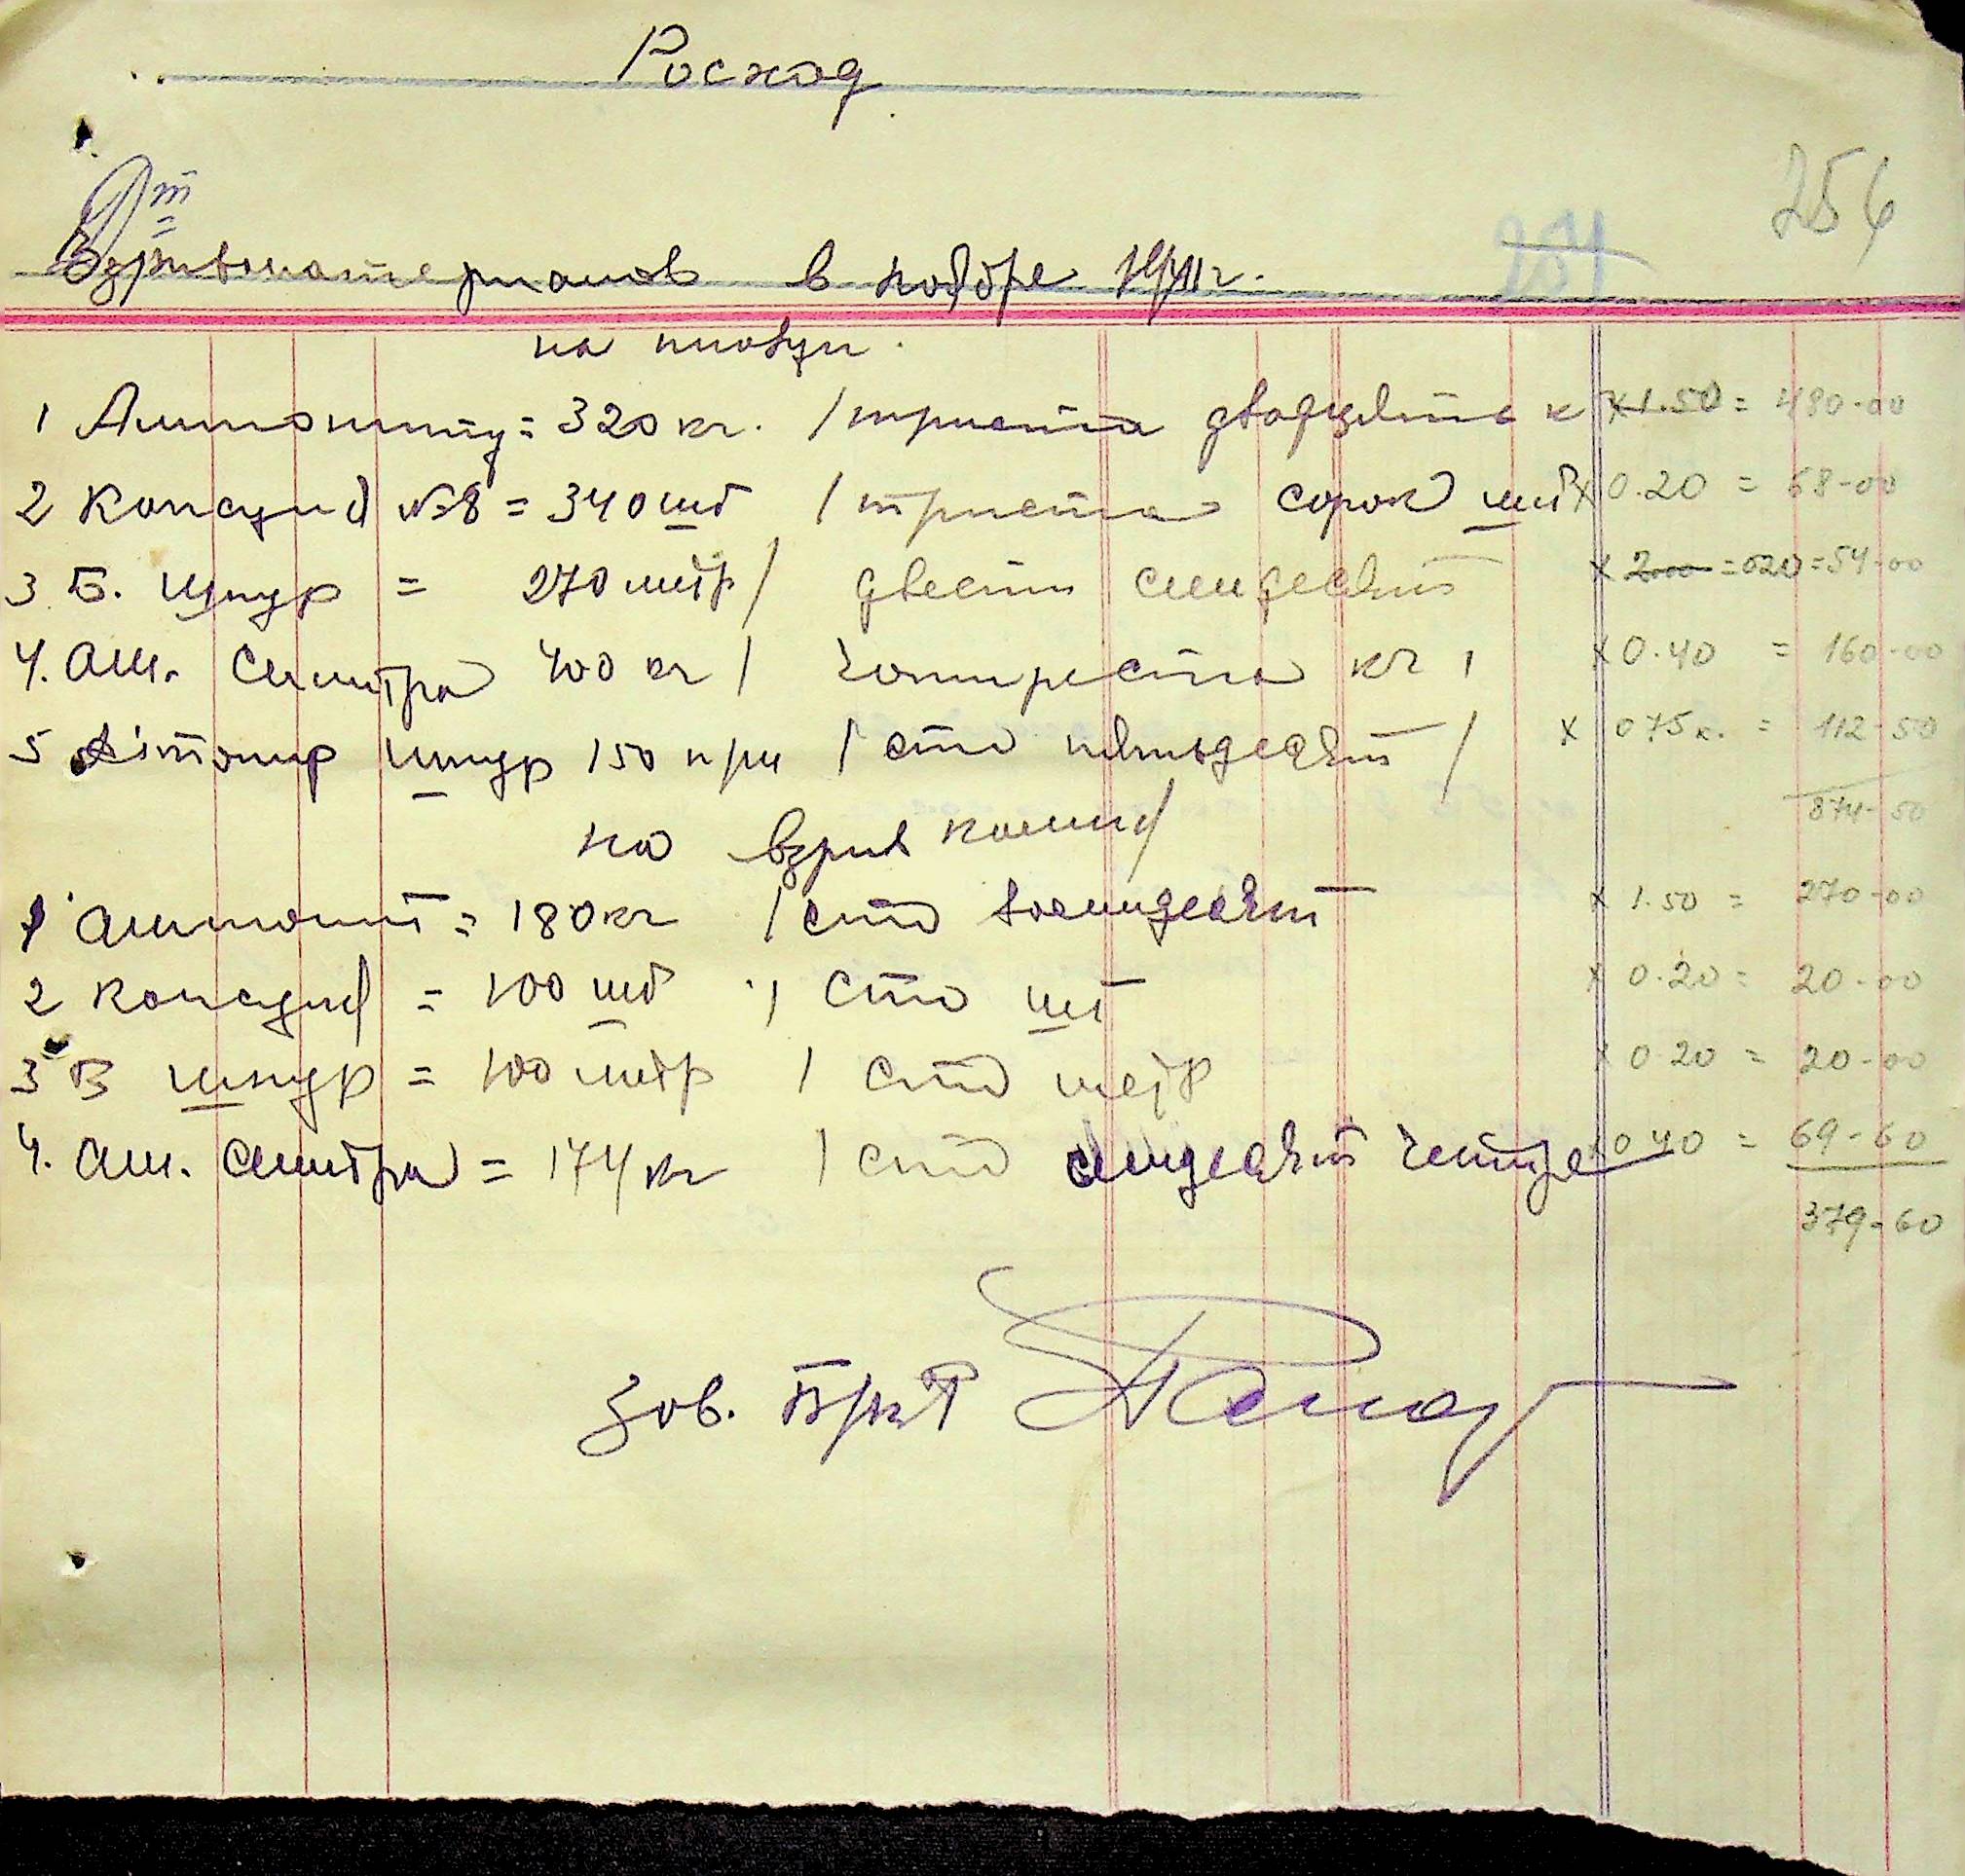 Росход
256
Взривоматериалов в ноябре 1941 г.
251
на площи.
1 Аммониту = 320 кг. /триста двадцять к х 1.50 = 480-00
2 Капсулів №8 = 340 шт /триста сорок шт х 0.20 = 68-00
3 Б. шнур = 270 метр / двести семдесят х 2.00 = 020 = 54-00
4. Ам. Силитра 400 кг / чотиреста кг / х 0.40 = 160-00
5 шнур 150 / сто пятьдесят / х 075 к. = 112-50
874-50
на взрив
1 Аммонит = 180 кг / сто восемдесят х 1.50 = 270-00
2 Капсулів = 100 шт / сто шт х 0.20 = 20-00
3 Б шнур = 100 метр / сто метр х 0.20 = 20-00
4. Ам. Силитра = 174 кг / сто семдесят четире х 0 40 = 69-60
379-60
Зав.